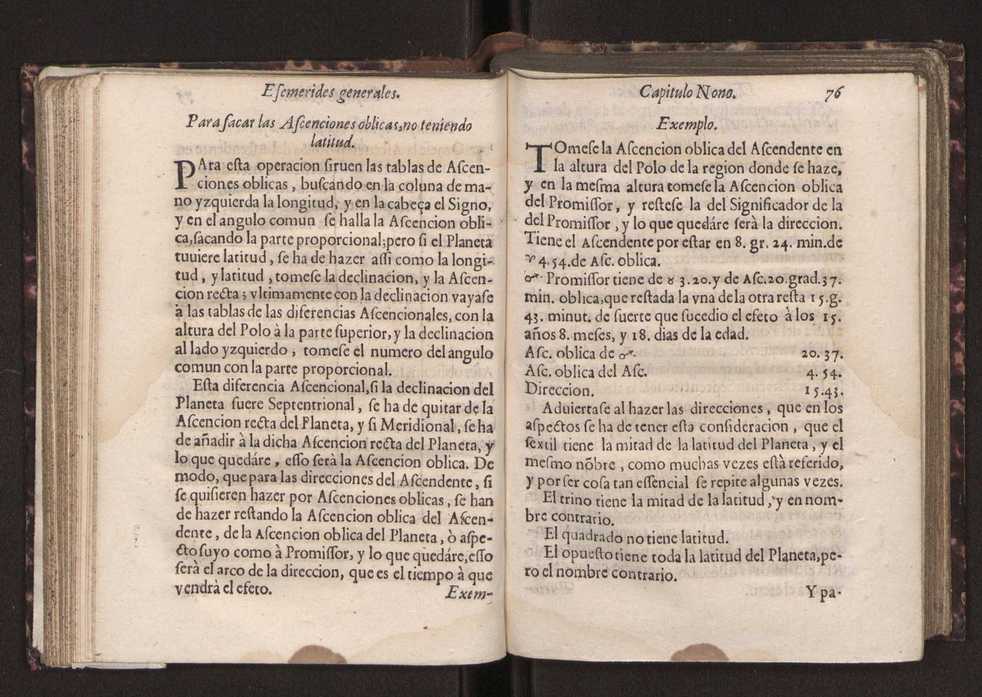 Efemerides generales.
Para sacar las Ascenciones oblicas, no teniendo
latitud.
PAra esta operacion siruen las tablas de Ascen-
ciones oblicas, buscando en la coluna de ma-
no yzquierda la longitud, y en la cabeça el Signo,
y en el angulo comun se halla la Ascencion obli-
ca, sacando la parte proporcional; pero si el Planeta
tuuiere latitud, se ha de hazer assi como la longi-
tud, y latitud, tomese la declinacion, y la Ascen-
cion recta; vltimamente con la declinacion vayase
à las tablas de las diferencias Ascencionales, con la
altura del Polo à la parte superior, y la declinacion
al lado yzquierdo, tomese el numero del angulo
comun con la parte proporcional.
Esta diferencia Ascencional, si la declinacion del
Planeta fuere Septentrional, se ha de quitar de la
Ascencion recta del Planeta, y si Meridional, se ha
de añadir à la dicha Ascencion recta del Planeta, y
lo que quedáre, esso serà la Ascencion oblica. De
modo, que para las direcciones del Ascendente, si
se quisieren hazer por Ascenciones oblicas, se han
de hazer restando la Ascencion oblica del Ascen-
dente, de la Ascencion oblica del Planeta, ò aspe-
cto suyo como à Promissor, y lo que quedáre, esso
serà el arco de la direccion, que es el tiempo à que
vendrà el efeto.
Exem-
Capitulo Nono. 76
Exemplo.
TOmese la Ascencion oblica del Ascendente en
la altura del Polo de la region donde se haze,
y en la mesma altura tomese la Ascencion oblica
del Promissor, y restese la del Significador de la
del Promissor, y lo que quedáre serà la direccion.
Tiene el Ascendente por estar en 8. gr. 24. min. de
♈ 4. 54. de Asc. oblica.
♂ Promissor tiene de ♉ 3. 20. y de Asc. 20. grad. 37.
min. oblica, que restada la vna de la otra resta 15. g.
43. minut. de suerte que sucedio el efeto à los 15.
años 8. meses, y 18. dias de la edad.
Asc. oblica de ♂. 20. 37.
Asc. oblica del Asc. 4. 54.
Direccion. 15. 43.
Aduiertase al hazer las direcciones, que en los
aspectos se ha de tener esta consideracion, que el
sextil tiene la mitad de la latitud del Planeta, y el
mesmo nõbre, como muchas vezes està referido,
y por ser cosa tan essencial se repite algunas vezes.
El trino tiene la mitad de la latitud, y en nom-
bre contrario.
El quadrado no tiene latitud.
El opuesto tiene toda la latitud del Planeta, pe-
ro el nombre contrario.
Y pa-